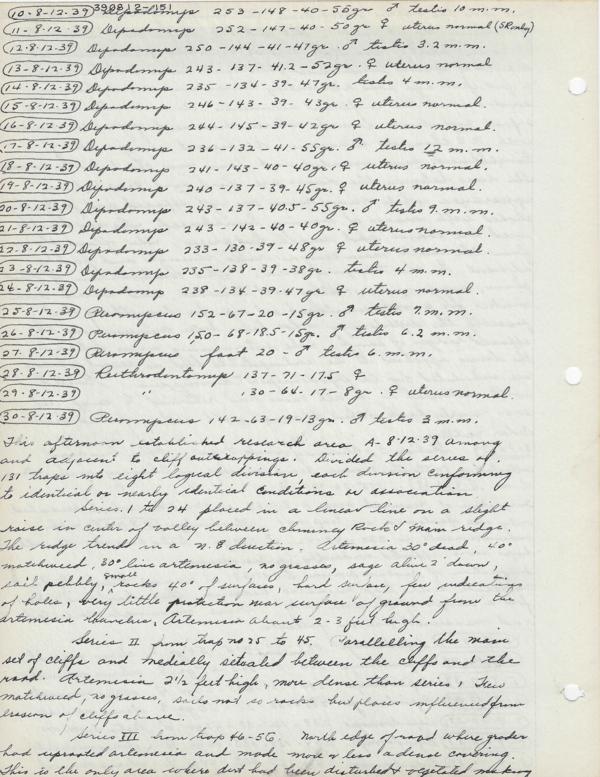 390812-151
10-8-12-39 Dipodomys 253-148-40-56gr ♂ testis 10 m.m.
11-8-12-39 Dipodomys 252-147-40-50gr ♀ uterus normal
12-8-12-39 Dipodomys 250-144-41-47gr. ♂ testis 3.2 m.m.
13-8-12-39 Dipodomys 243-137-41.2-52gr. ♀ uterus normal
14-8-12-39 Dipodomys 235-134-39-47gr. testis 4 m.m.
15-8-12-39 Dipodomys 246-143-39-43gr. ♀ uterus normal.
16-8-12-39 Dipodomys 244-145-39-42gr ♀ uterus normal.
17-8-12-39 Dipodomys 236-132-41-55gr. ♂ testis 12 m.m.
18-8-12-39 Dipodomys 241-143-40-40gr. ♀ uterus normal.
19-8-12-39 Dipodomys 240-137-39-45gr. ♀ uterus normal.
20-8-12-39 Dipodomys 243-137-40.5-55gr. ♂ testis 9. m.m.
21-8-12-39 Dipodomys 243-142-40-40gr. ♀ uterus normal.
22-8-12-39 Dipodomys 233-130-39-48gr ♀ uterus normal.
23-8-12-39 Dipodomys 235-138-39-38gr. testis 4 m.m.
24-8-12-39 Dipodomys 238-134-39-47gr ♀ uterus normal.
25-8-12-39 Peromyscus 152-67-20-15gr ♂ testis 7. m.m.
26-8-12-39 Peromyscus 150-68-18.5-15gr. ♂ testis 6.2 m.m.
27-8-12-39 Peromyscus foot 20 - ♂ testis 6. m.m.
28-8-12-39 Reithrodontomys 137-71-17.5 ♀
29-8-12-39 " 130-64-17-8gr. ♀ uterus normal.
30-8-12-39 Peromyscus 142-63-19-13gr. ♂ testis 3 m.m.
This afternoon established research area A-8-12-39 among
and adjacent to cliff outcroppings. Divided the series of
131 traps into eight logical division, each division conforming
to identical or nearly identical conditions or association
Series. 1 to 24 placed in a linear line on a slight
raise in center of valley between chimney Rock & main ridge.
The ridge trends in a direction. Artemesia 30° dead, 40°
matchweed, 30° live artemesia, no grasses, sage alive 2' down,
soil pebbly, small rocks 40° of surfaces, hard surface, few indications
of holes, very little protection near surface of ground from the
artemesia themselves, Artemesia about 2-3 feet high.
Series II from trap no 25 to 45. Parallelling the main
set of cliffs and medially situated between the cliffs and the
road. Artemesia 2½ feet high, more dense than series 1 Few
matchweed, no grasses, soils not so rocks but places influenced from
erosion of cliffs above.
Series III from trap 46-56. North edge of road where grader
had uprooted artemesia and made more or less a dense covering.
This is the only area where dirt had been disturbed & vegetated